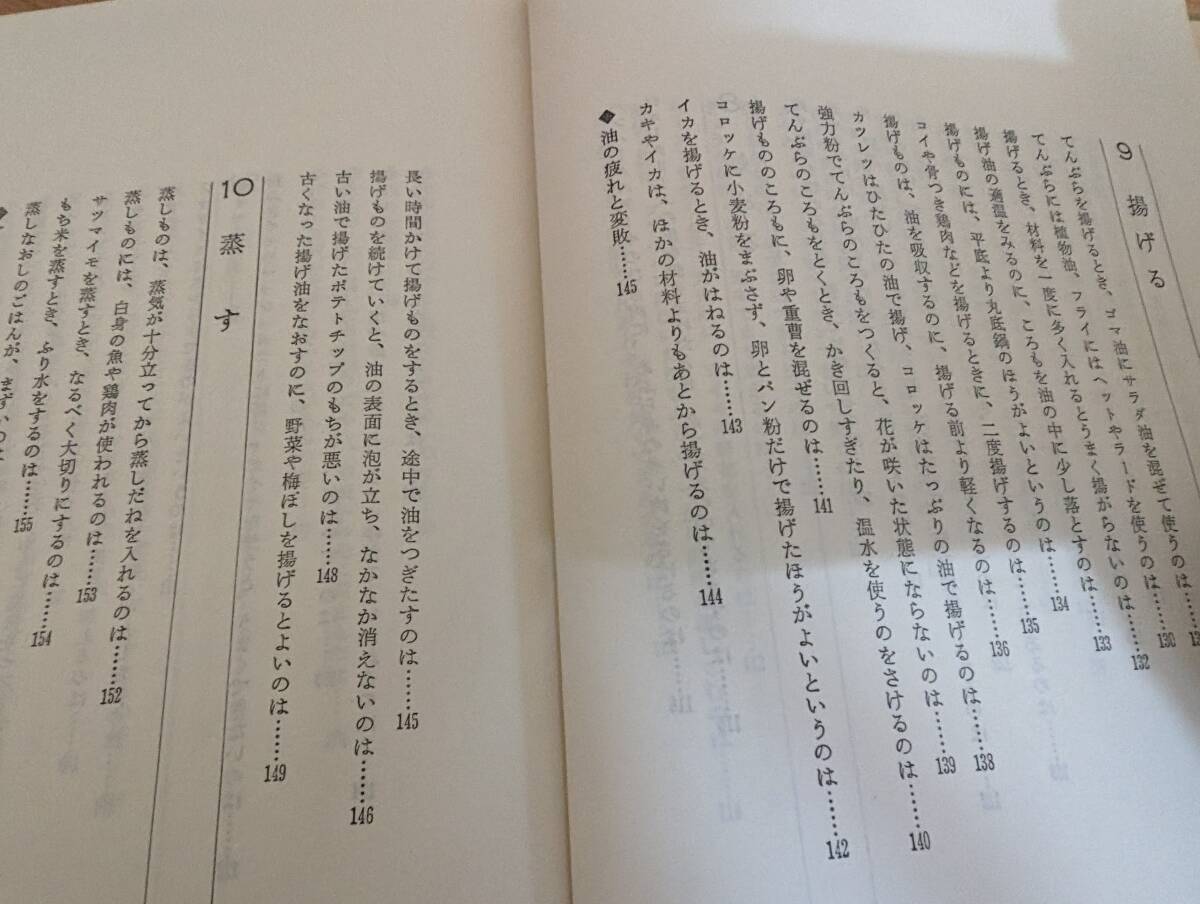 9 揚げる
てんぷらを揚げるとき、ゴマ油にサラダ油を混ぜて使うのは……
てんぷらには植物油、フライにはヘットやラードを使うのは……130
揚げるとき、材料を一度に多く入れるとうまく揚がらないのは……132
揚げ油の適温をみるのに、ころもを油の中に少し落とすのは……133
揚げものには、平底より丸底鍋のほうがよいというのは……134
コイや骨つき鶏肉などを揚げるときに、二度揚げするのは……135
揚げものは、油を吸収するのに、揚げる前より軽くなるのは……136
カツレツはひたひたの油で揚げ、コロッケはたっぷりの油で揚げるのは……138
強力粉でてんぷらのころもをつくると、花が咲いた状態にならないのは……139
てんぷらのころもをとくとき、かき回しすぎたり、温水を使うのをさけるのは……140
揚げもののころもに、卵や重曹を混ぜるのは……141
コロッケに小麦粉をまぶさず、卵とパン粉だけで揚げたほうがよいというのは……142
イカを揚げるとき、油がはねるのは……143
カキやイカは、ほかの材料よりもあとから揚げるのは……144
◆油の疲れと変敗……145
長い時間かけて揚げものをするとき、途中で油をつぎたすのは……145
揚げものを続けていくと、油の表面に泡が立ち、なかなか消えないのは……146
古い油で揚げたポテトチップのもちが悪いのは……148
古くなった揚げ油をなおすのに、野菜や梅ぼしを揚げるとよいのは……149
10 蒸す
蒸しものは、蒸気が十分立ってから蒸しだねを入れるのは……152
蒸しものには、白身の魚や鶏肉が使われるのは……153
サツマイモを蒸すとき、なるべく大切りにするのは……154
もち米を蒸すとき、ふり水をするのは……155
蒸しなおしのごはんが、まずいのは
◆